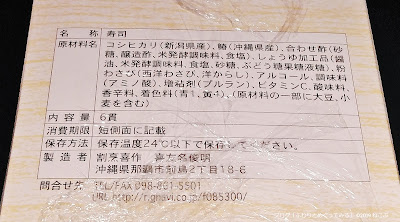 名 称 寿司
原材料名 コシヒカリ(新潟県産)、鰆(沖縄県産)、合わせ酢(砂
糖、醸造酢、米発酵調味料、食塩)、しょうゆ加工品(醤
油、米発酵調味料、食塩、砂糖、ぶどう糖果糖液糖)、粉
わさび(西洋わさび、洋からし)、アルコール、調味料
(アミノ酸)、増粘剤(プルラン)、ビタミンC、酸味料、
香辛料、着色料(青1、黄4)、(原材料の一部に大豆、小
麦を含む)
内 容 量 6貫
消費期限 短側面に記載
保存方法 保存温度24℃以下で保存してください。
製 造 者 割烹喜作 喜友名俊明
沖縄県那覇市前島2丁目18-8
問合せ先 TEL/FAX 098-861-5501
URL http://r.gnavi.co.jp/f085300/